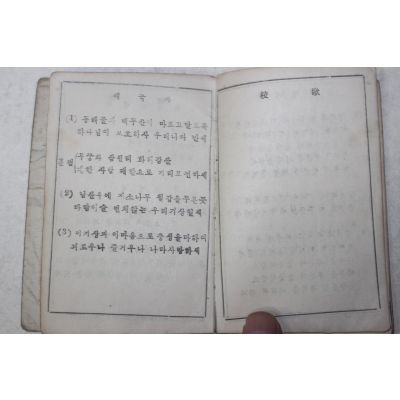 애국가
(1) 동해물과 백두산이 마르고달토록
하나님이 보호하사 우리나라 만세
후렴 무궁화 삼천리 화려강산
대한 사람 대한으로 기리보전하세
(2) 남산우에 저소나무 철갑을두른듯
바람이슬 변치않는 우리기상일세
(3) 이기상과 이마음으로충성을다하여
괴로우나 즐거우나 나라사랑하세
校 歌